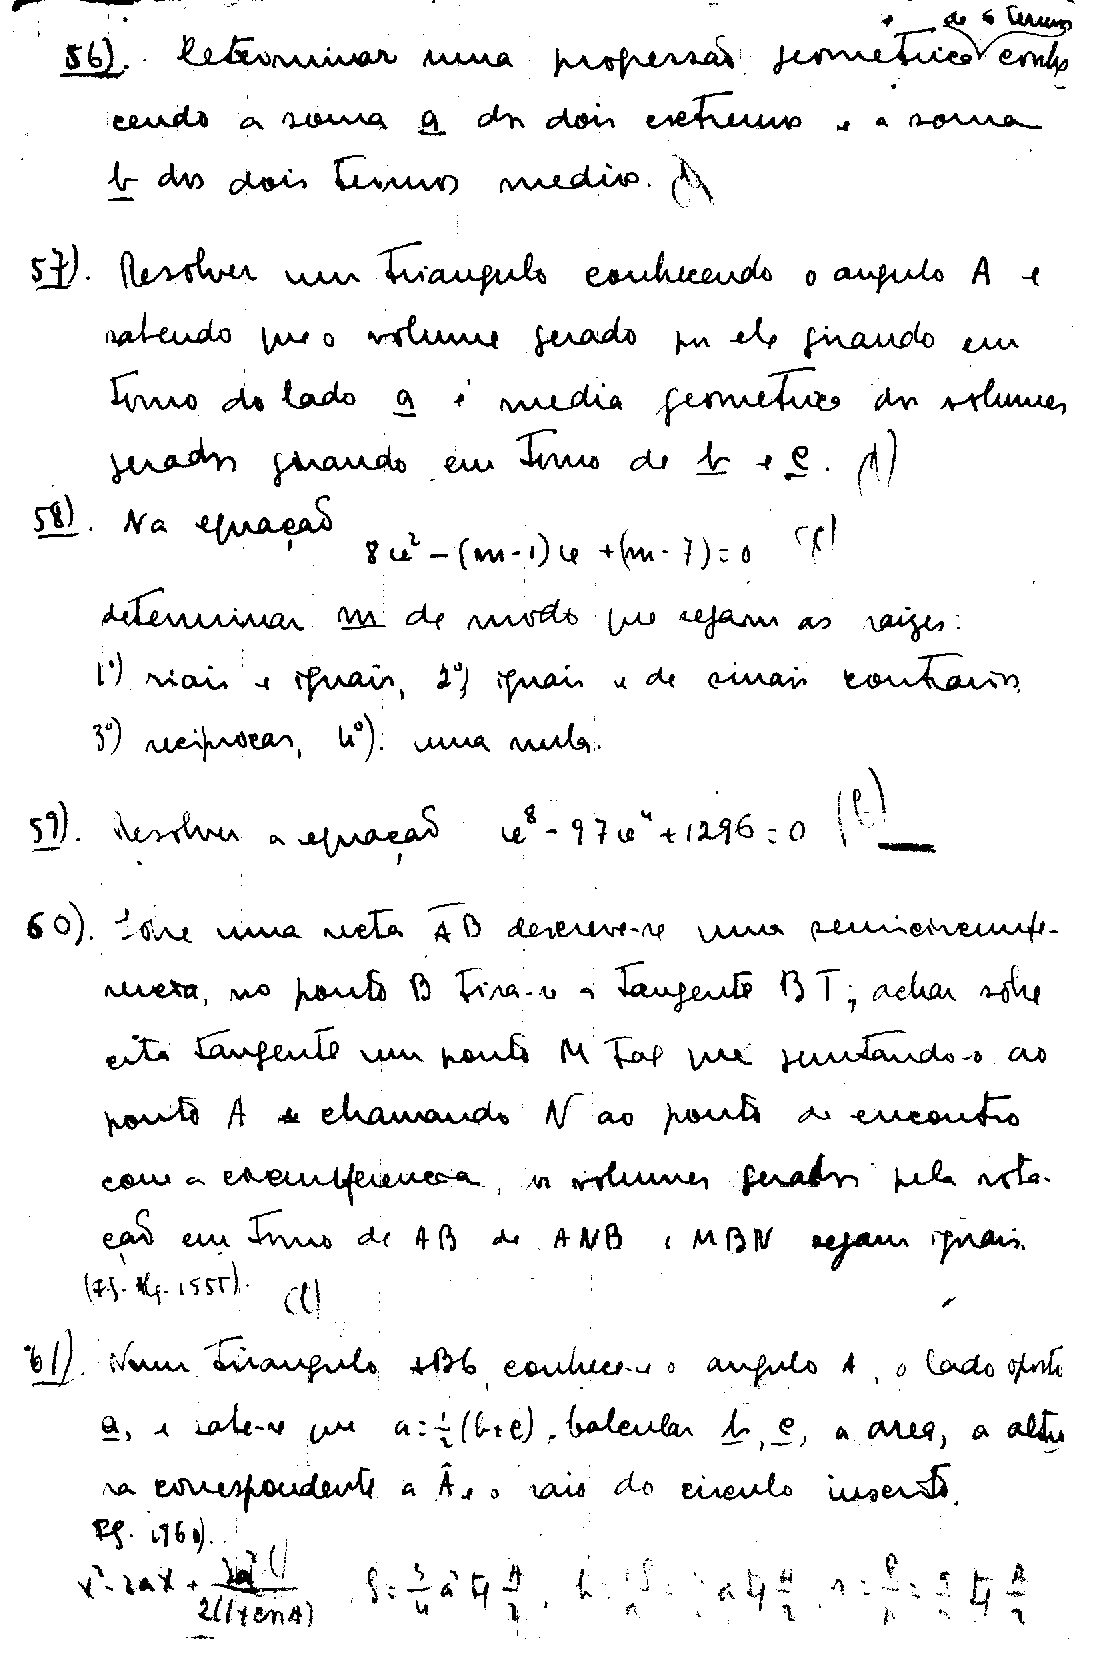 de 6 termos
56). Determinar uma progressão geometrica conhe
cendo a soma a dos dois extremos e a soma
b dos dois termos medios.
57). Resolver um triangulo conhecendo o angulo A e
sabendo que o volume gerado por ele girando em
torno do lado a é media geometrica dos volumes
gerados girando em torno de b e c.
58). Na equação
8x² - (m-1)x + (m-7) = 0
determinar m de modo que sejam as raizes:
1º) riais e iguais, 2º) iguais e de sinais contrarios,
3º) reciprocas, 4º). uma nula.
59). Resolver a equação x⁸ - 97x⁴ + 1296 = 0
60). Sobre uma reta AB descreve-se uma semicircunfe-
rencia, no ponto B tira-se a tangente BT; achar sobre
esta tangente um ponto M tal que juntando-o ao
ponto A e chamando N ao ponto de encontro
com a circunferencia, os volumes gerados pela rota-
ção em torno de AB de ANB e MBN sejam iguais.
61). Num triangulo ABC, conhece-se o angulo A, o lado oposto
a, e sabe-se que a = ½(b+c). Calcular b, c, a area, a altu
ra correspondente a Â e o raio do circulo inscrito.
x² - 2ax + 3a² / 2(1+cos A)